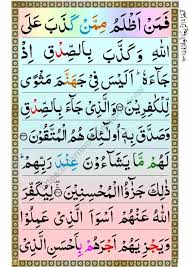 فَمَنْ اَظْلَمُ مِمَّنْ كَذَبَ عَلَى
اللّٰهِ وَكَذَّبَ بِالصِّدْقِ اِذْ
جَآءَهٗ ؕ اَلَيْسَ فِيْ جَهَنَّمَ مَثْوًى
لِّلْكٰفِرِيْنَ ۝ وَالَّذِيْ جَآءَ بِالصِّدْقِ
وَصَدَّقَ بِهٖۤ اُولٰٓئِكَ هُمُ الْمُتَّقُوْنَ ۝
لَهُمْ مَّا يَشَآءُوْنَ عِنْدَ رَبِّهِمْ ؕ
ذٰلِكَ جَزٰٓؤُا الْمُحْسِنِيْنَ ۝ لِيُكَفِّرَ
اللّٰهُ عَنْهُمْ اَسْوَاَ الَّذِيْ عَمِلُوْا
وَيَجْزِيَهُمْ اَجْرَهُمْ بِاَحْسَنِ الَّذِيْ